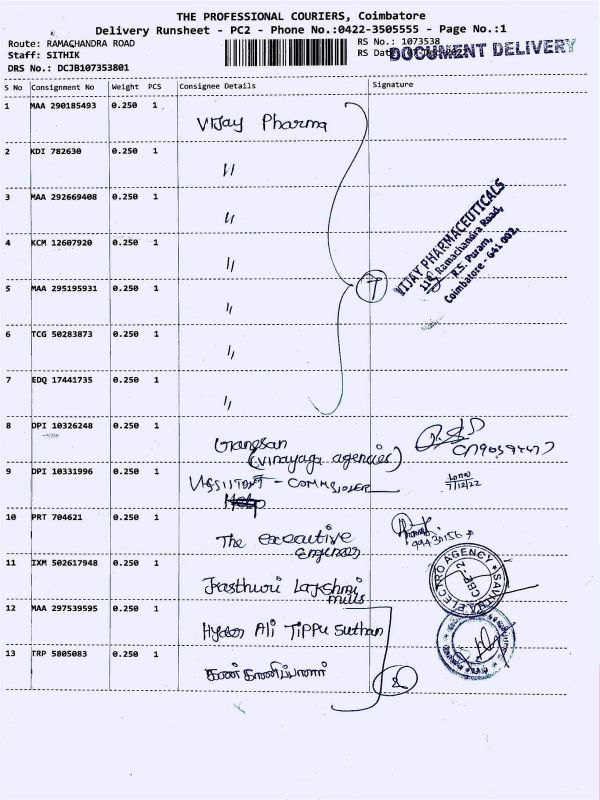 THE PROFESSIONAL COURIERS, Coimbatore
Delivery Runsheet - PC2 - Phone No.:0422-3505555 - Page No.:1
Route: RAMACHANDRA ROAD
RS No.: 1073538
Staff: SITHIK
RS Date
DOCUMENT DELIVERY
DRS No.: DCJB107353801
S No Consignment No Weight PCS Consignee Details Signature
1 MAA 290185493 0.250 1 Vijay Pharma
2 KDI 782630 0.250 1 "
3 MAA 292669408 0.250 1 "
4 KCM 12607920 0.250 1 "
5 MAA 295195931 0.250 1 "
6 TCG 50283873 0.250 1 "
7 EDQ 17441735 0.250 1 "
7
VIJAY PHARMACEUTICALS
Ramachandra Road,
R.S. Puram,
Coimbatore - 641 002.
8 DPI 10326248 0.250 1
(vinayaga agencies)
9 DPI 10331996 0.250 1
7/12/22
10 PRT 704621 0.250 1 The executive
Engineer
11 IXM 502617948 0.250 1 Kasthuri Lakshmi
mills
ELECTRO AGENCY
CBE-2
12 MAA 297539595 0.250 1 Hyder Ali Tippu Sulthan
13 TRP 5805083 0.250 1 கண்காணிப்பாளர்